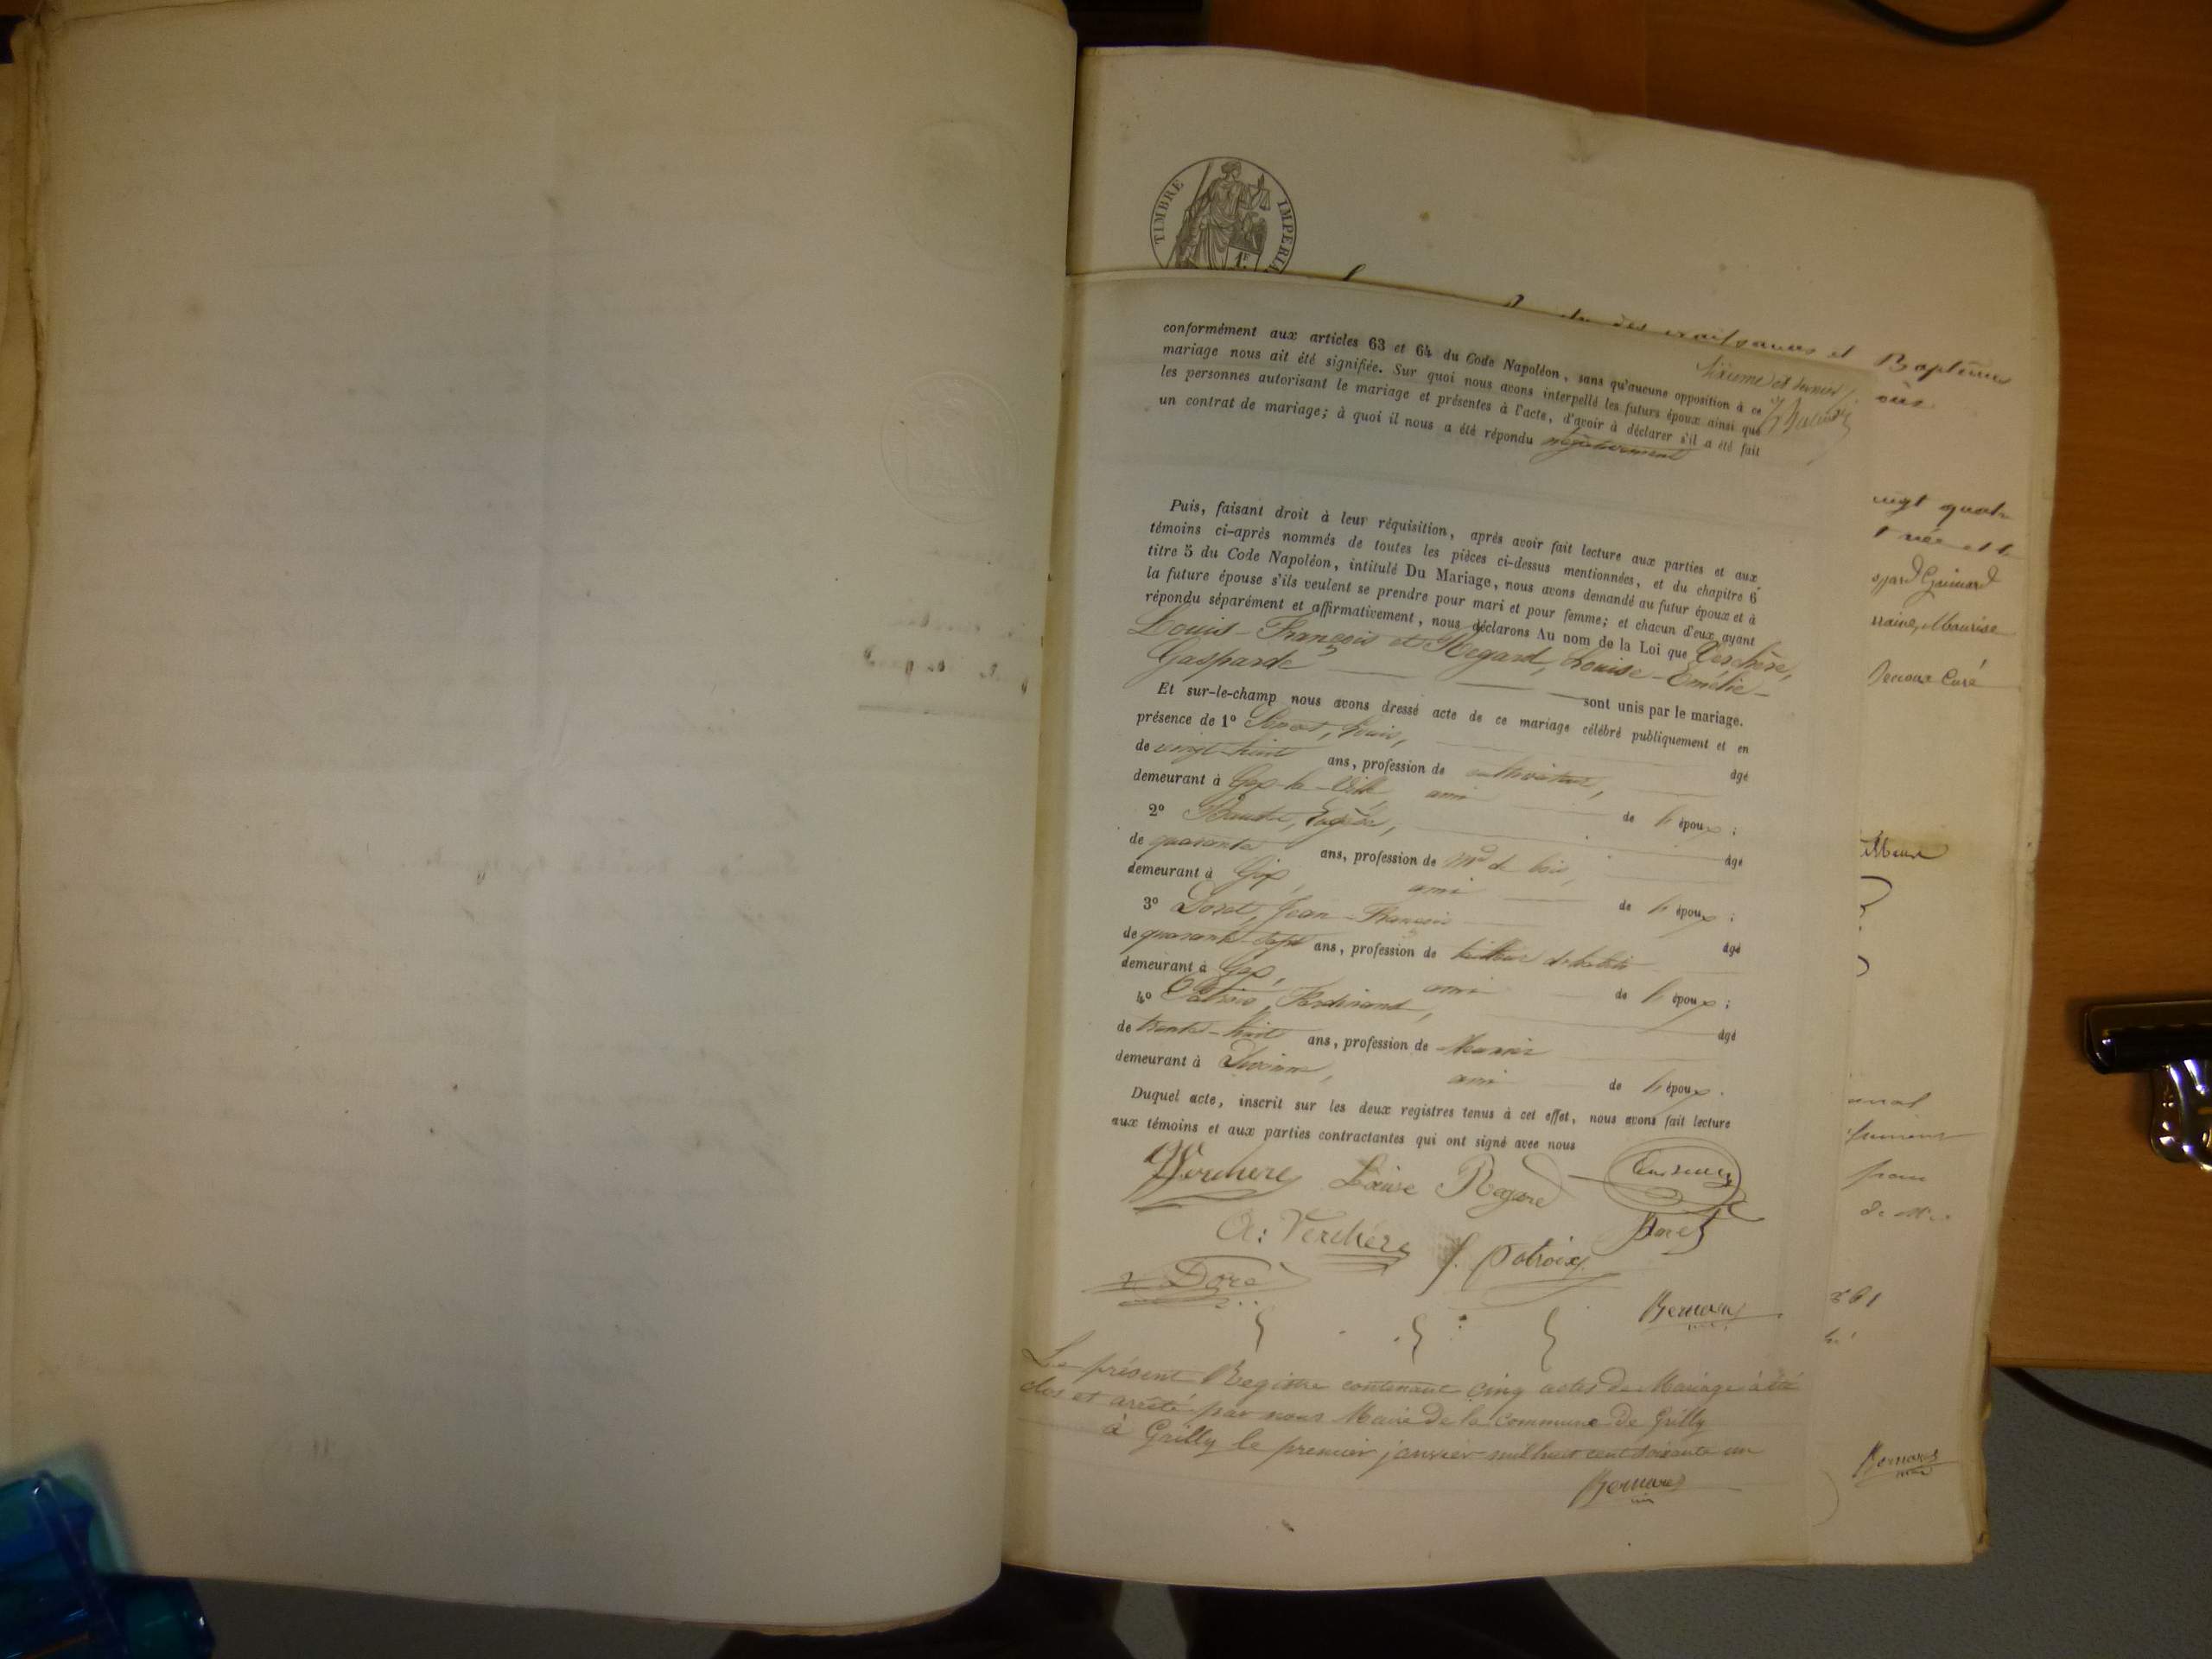 TIMBRE IMPERIA
1F
des naissances et Baptêmes
conformément aux articles 63 et 64 du Code Napoléon, sans qu'aucune opposition à ce
mariage nous ait été signifiée. Sur quoi nous avons interpellé les futurs époux ainsi que
les personnes autorisant le mariage et présentes à l'acte, d'avoir à déclarer s'il a été fait
un contrat de mariage; à quoi il nous a été répondu négativement
sixième et dernier
Puis, faisant droit à leur réquisition, après avoir fait lecture aux parties et aux
témoins ci-après nommés de toutes les pièces ci-dessus mentionnées, et du chapitre 6
titre 5 du Code Napoléon, intitulé Du Mariage, nous avons demandé au futur époux et à
la future épouse s'ils veulent se prendre pour mari et pour femme; et chacun d'eux ayant
répondu séparément et affirmativement, nous déclarons Au nom de la Loi que Verchère,
Louis-François et Regard, Louise-Emélie-
Gasparde sont unis par le mariage.
Et sur-le-champ nous avons dressé acte de ce mariage célébré publiquement et en
présence de 1° Louis, âgé
de vingt-huit ans, profession de cultivateur,
demeurant à Gex-la-Ville ami de l'époux;
2° âgé
de quarante ans, profession de Md de bois,
demeurant à Gex, ami de l'époux;
3° Doret, Jean-François âgé
de quarante-sept ans, profession de tailleur d'habits
demeurant à Gex, ami de l'époux;
4° Ferdinand, âgé
de trente-huit ans, profession de Meunier
demeurant à Divonne, ami de l'époux.
Duquel acte, inscrit sur les deux registres tenus à cet effet, nous avons fait lecture
aux témoins et aux parties contractantes qui ont signé avec nous
Verchere Louise Regard
A: Verchére
Doré
Bernard
Le présent Registre contenant cinq actes de Mariage a été
clos et arrêté par nous Maire de la commune de Grilly
à Grilly le premier janvier mil huit cent soixante un
Bernard
vingt quatre
Curé
Bernard